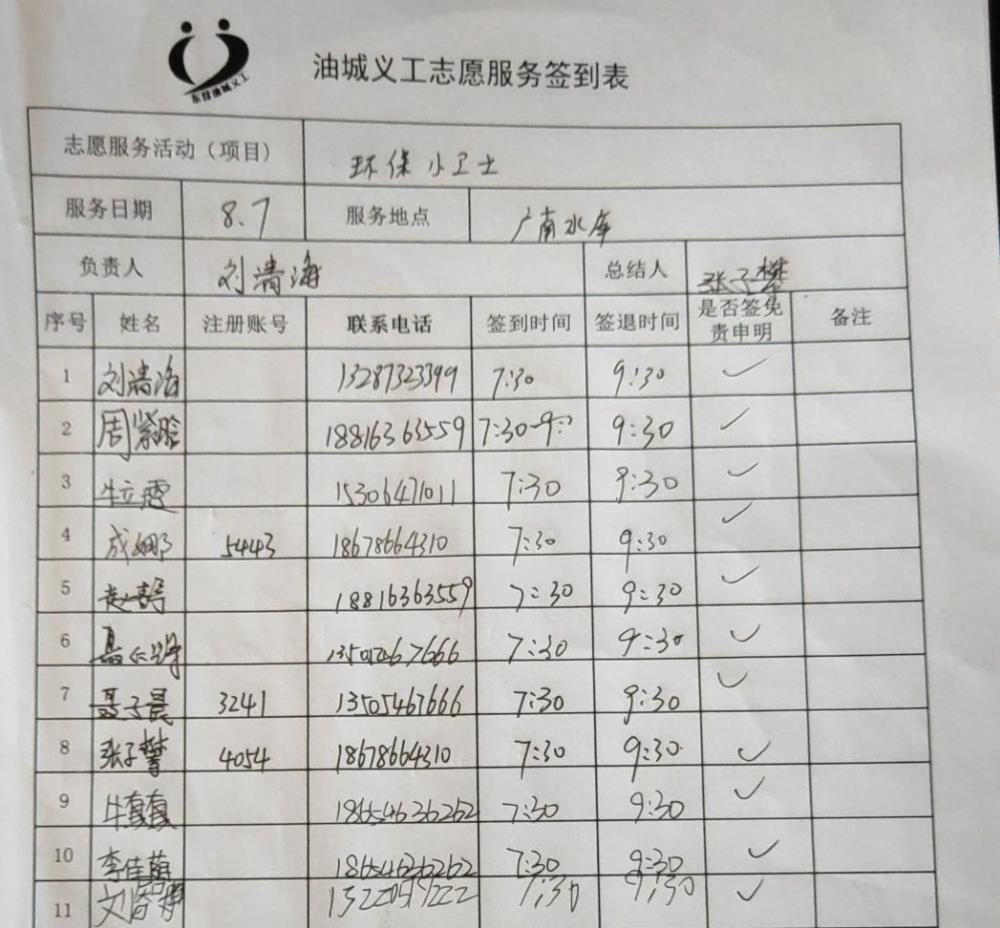 东营油城义工
油城义工志愿服务签到表
志愿服务活动（项目） 环保小卫士
服务日期 8.7 服务地点 广南水库
负责人 刘清海 总结人 张子攀
序号 姓名 注册账号 联系电话 签到时间 签退时间 是否签免责申明 备注
1 刘清海 13287323399 7:30 9:30 ✓
2 周紫晗 18816363559 7:30-9: 9:30 ✓
3 牛立霞 15306471011 7:30 9:30 ✓
4 成娜 5443 18678664310 7:30 9:30 ✓
5 18816363559 7:30 9:30 ✓
6 7:30 9:30 ✓
7 聂子晨 3241 13505467666 7:30 9:30 ✓
8 张子攀 4054 18678664310 7:30 9:30 ✓
9 18654636262 7:30 9:30 ✓
10 李佳 18654636262 7:30 9:30 ✓
11 7:30 9:30 ✓